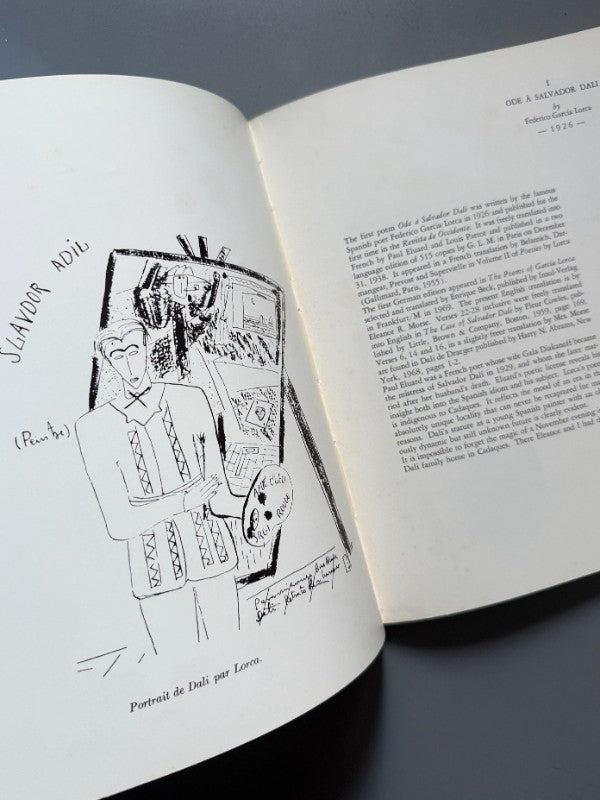 SLAVDOR ADIL
(Peintre)
Portrait de Dali par Lorca.
I
ODE À SALVADOR DALI
by
Federico Garcia Lorca
— 1926 —
The first poem Ode à Salvador Dali was written by the famous
Spanish poet Federico Garcia Lorca in 1926 and published for the
first time in the Revista de Occidente. It was freely translated into
French by Paul Eluard and Louis Parrot and published in a two
language edition of 515 copies by G. L. M. in Paris on December
31, 1938. It appeared in a French translation by Belamich, Dar-
mangeat, Prevost and Supervielle in Volume II of Poesie by Lorca
(Gallimard, Paris, 1955).
The first German edition appeared in The Poems of Garcia Lorca
selected and translated by Enrique Beck, published by Insel-Verlag
in Frankfurt/M in 1969. The present English translation is by
Eleanor R. Morse. Verses 22-28 inclusive were freely translated
into English in The Case of Salvador Dali by Fleur Cowles, pub-
lished by Little, Brown & Company, Boston, 1959, page 168.
Verses 6, 14 and 16, in a slightly freer translation by Mrs. Morse
are found in Dali de Draeger published by Harry N. Abrams, New
York, 1968, pages 1-2.
Paul Eluard was a French poet whose wife Gala Diakanoff became
the mistress of Salvador Dali in 1929, and whom she later mar-
ried after her husband's death. Eluard's poetic license would his
insight both into the Spanish idiom and his subject. Lorca's poem
is indigenous to Cadaques. It reflects the mood of an era in that
absolutely unique locality that can never be recaptured for many
reasons. Dali's stature as a young Spanish painter with an obvi-
ously dynamic but still unknown future is clearly evident.
It is impossible to forget the magic of a November evening at the
Dali family home in Cadaques. There Eleanor and I had dinner